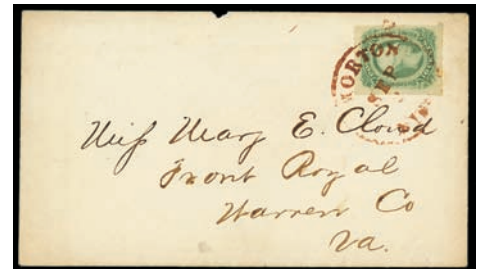 NORTON
SEP
Miss Mary E. Cloud
Front Royal
Warren Co
Va.